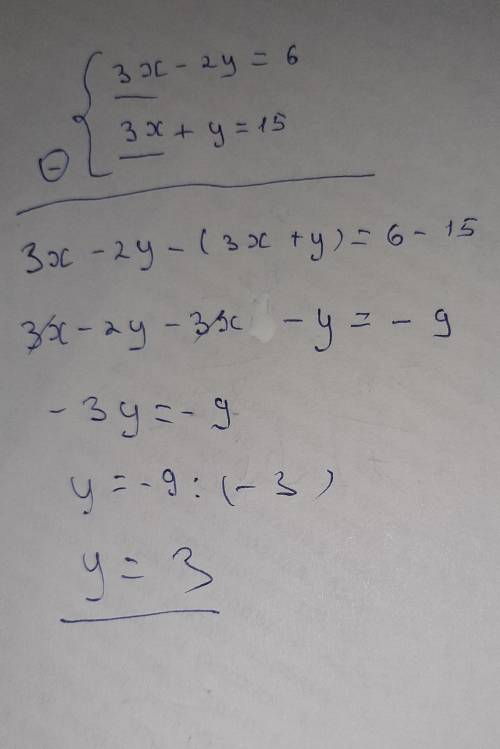 3x - 2y = 6
3x + y = 15
3x - 2y - (3x + y) = 6 - 15
3x - 2y - 3x - y = - 9
- 3y = - 9
y = -9 : (- 3)
y = 3